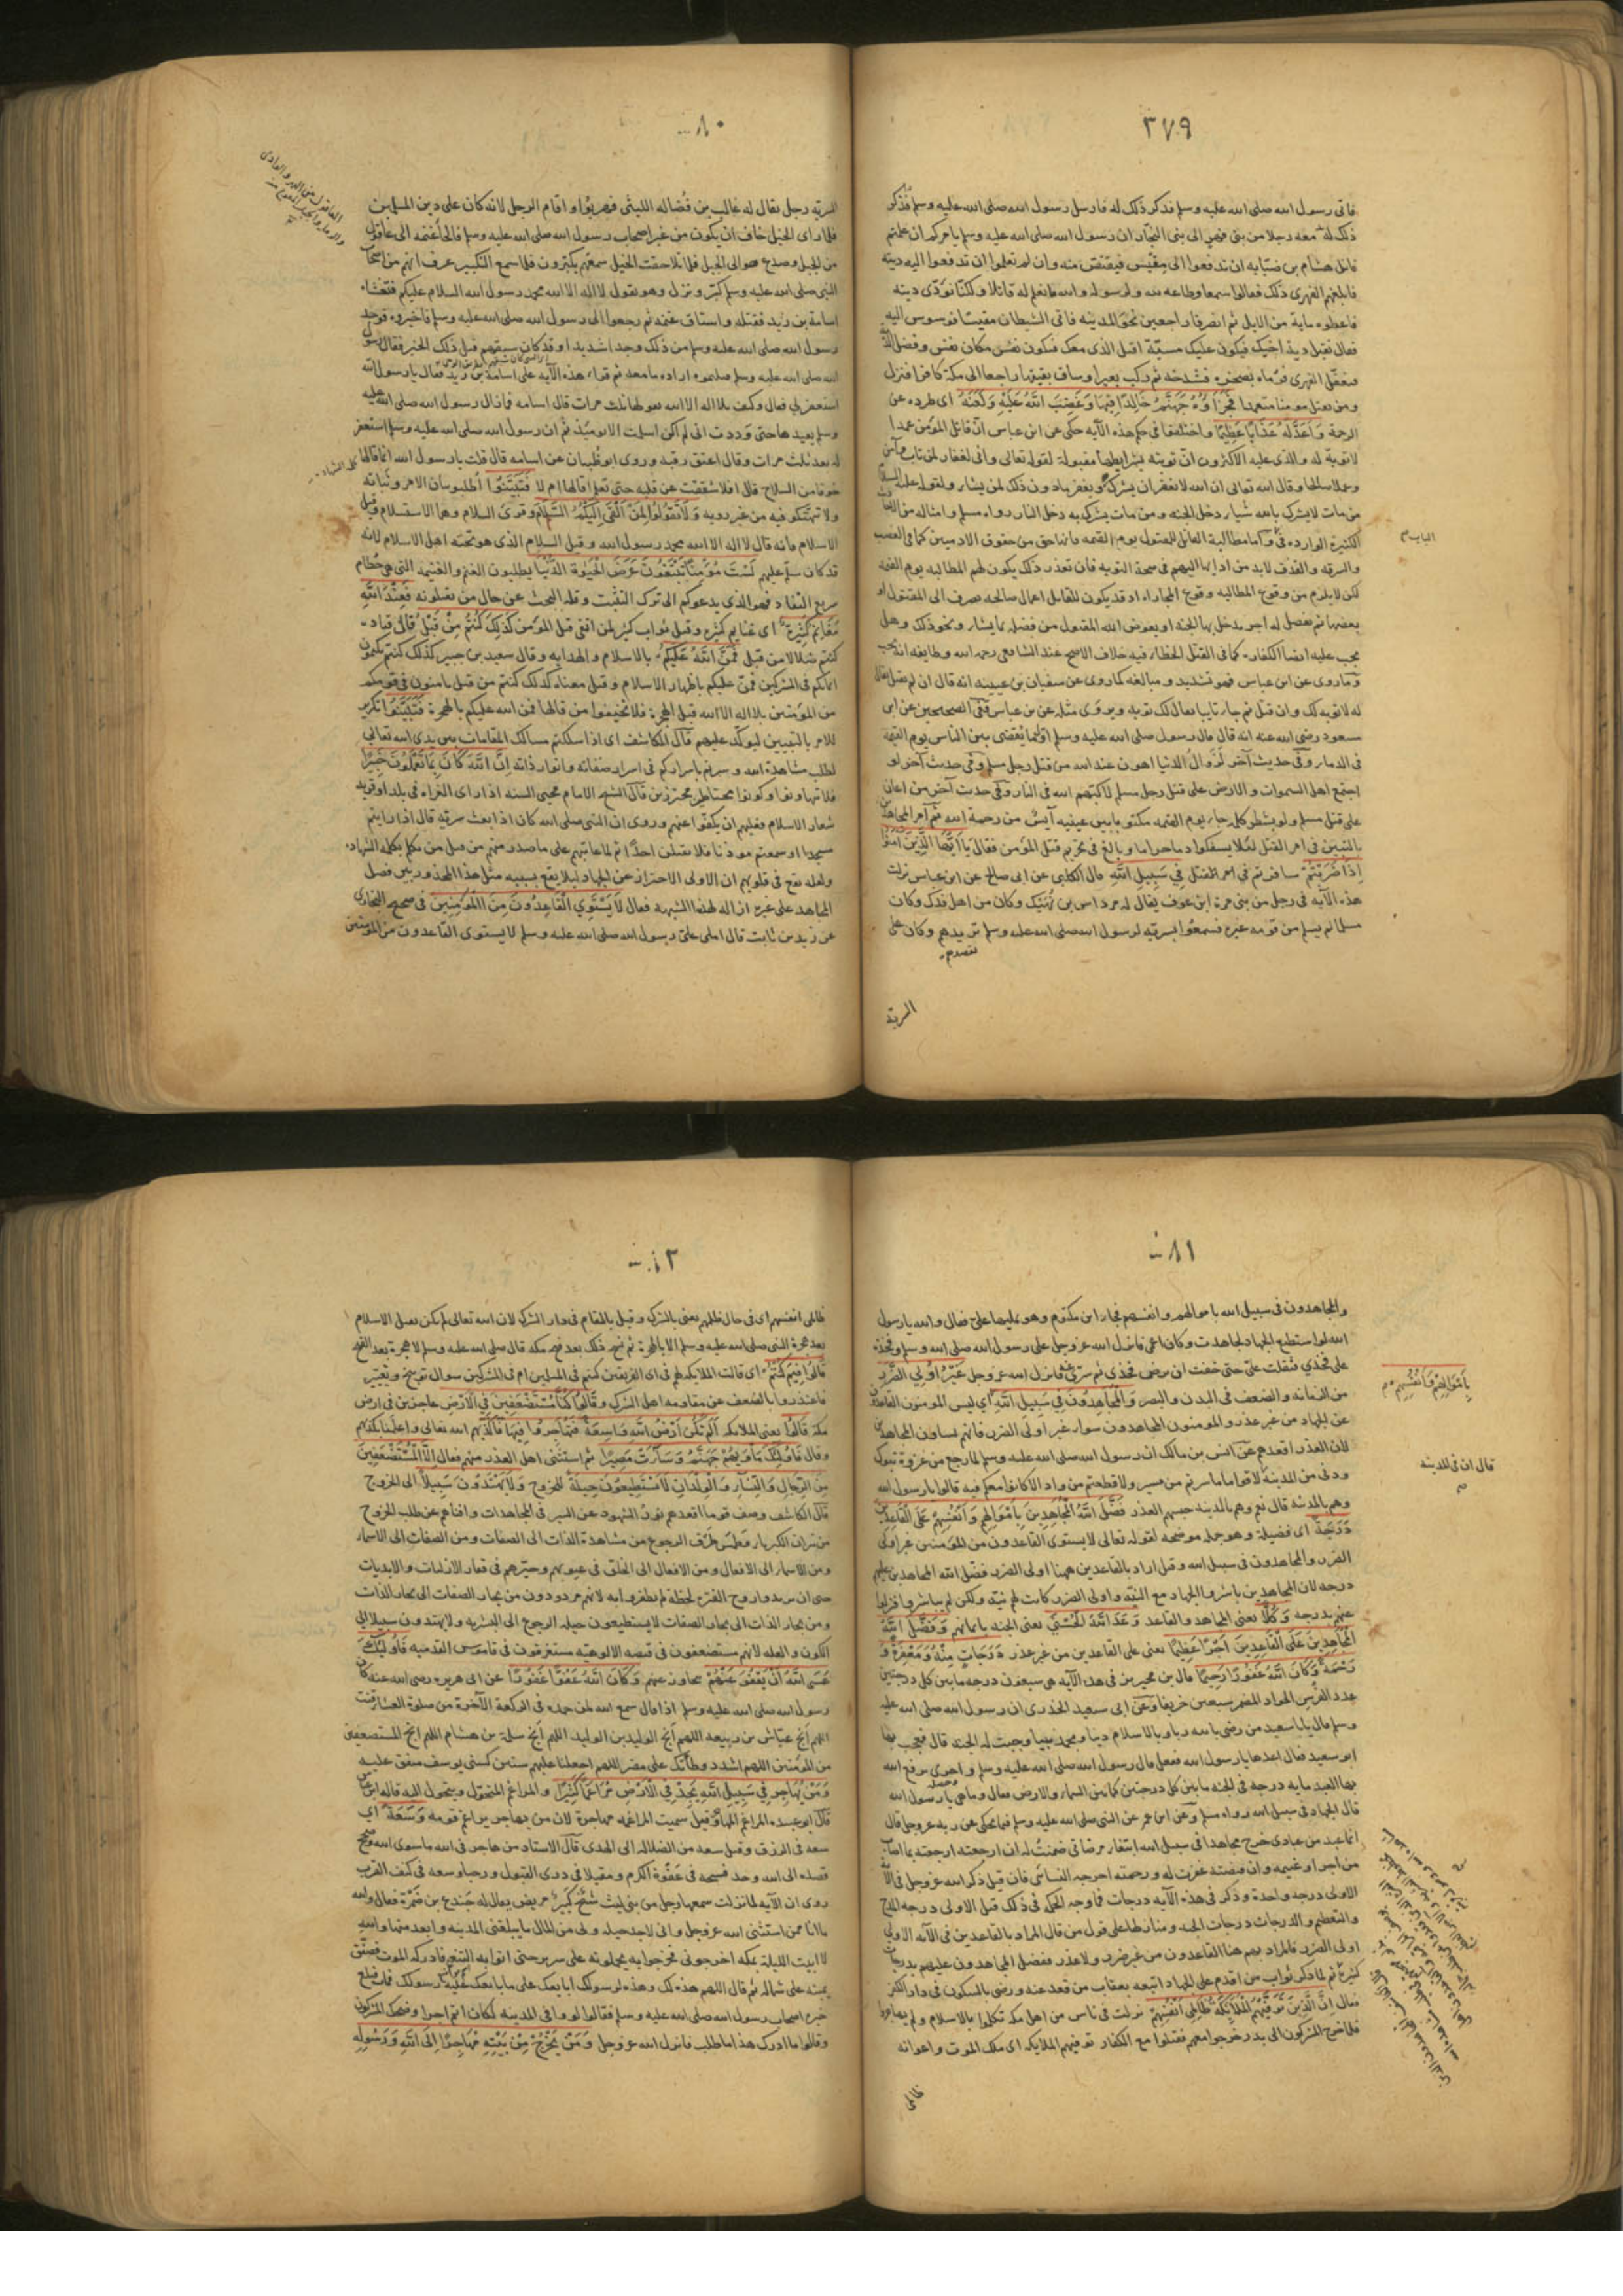 ٢٧٩
فاتى رسول الله صلى الله عليه وسلم فذكر ذلك له فارسل رسول الله صلى الله عليه وسلم فذكر
ذلك له معه رجلا من بنى فهر الى بنى النجار ان رسول الله صلى الله عليه وسلم يامركم ان علمتم
قاتل هشام بن ضبابه ان تدفعوا الى مقيس فيقتص منه وان لم تعلموا ان تدفعوا اليه ديته
فابلغهم الفهرى ذلك فقالوا سمعا وطاعه لله ولرسوله والله ما نعلم له قاتلا ولكنا نودى ديته
فاعطوه ماية من الابل ثم انصرفا راجعين نحو المدينه فاتى الشيطان مقيسا فوسوس اليه
فقال تقبل دية اخيك فيكون عليك مسبّة اقتل الذى معك فيكون نفس مكان نفس وفضل الدية
فتغفّل الفهرى فرماه بصخره فشدخه ثم ركب بعيرا وساق بقيتها راجعا الى مكة كافرا فنزل
ومن يقتل مومنا متعمدا فَجَزَاؤُهُ جَهَنَّمُ خَالِدًا فِيهَا وَغَضِبَ اللَّهُ عَلَيْهِ وَلَعَنَهُ اى طرده عن
الرحمة وَاَعَدَّ لَهُ عَذَابًا عَظِيمًا واختلفوا فى حكم هذه الآيه حكى عن ابن عباس انّ قاتل المؤمن عمدا
لا توبة له والذى عليه الاكثرون انّ توبته بشرايطها مقبولة لقوله تعالى وانى لغفار لمن تاب وآمن
وعمل صالحا وقال الله تعالى ان الله لا يغفر ان يشرك به ويغفر ما دون ذلك لمن يشاء ولقوله عليه السلام
من مات لا يشرك بالله شيا دخل الجنه ومن مات يشرك به دخل النار رواه مسلم وامثاله من
الكثيرة الوارده فى واما مطالبة القاتل للمقتول يوم القيمه فانها حق من حقوق الادميين كما فى الغصب
الباب
والسرقه والقذف لابد من ادايها اليهم فى صحة التوبه فان تعذر ذلك يكون لهم المطالبه يوم القيمه
لكن لا يلزم من وقوع المطالبه وقوع المجازاه اذ قد يكون للقاتل اعمال صالحه تصرف الى المقتول او
بعضها ثم يفضل له اجر يدخل بها الجنه او يعوض الله المقتول من فضله بما يشاء ونحو ذلك وهل
يجب عليه ايضا الكفارة كما فى القتل الخطاء فيه خلاف الاصح عند الشافعى رحمه الله وطايفه انه تجب
وما روى عن ابن عباس فهو تشديد ومبالغه كما روى عن سفيان بن عيينه انه قال ان لم يقتل يقال
له لا توبه لك وان قتل ثم جاء تايبا يقال لك توبه ويروى مثله عن بن عباس ففى الصحيحين عن ابن
مسعود رضى الله عنه انه قال قال رسول صلى الله عليه وسلم اوّل ما يُقضى بين الناس يوم القيمة
فى الدماء وفى حديث آخر لَزَوالُ الدنيا اهون عند الله من قتل رجل مسلم وفى حديث آخر لو
اجتمع اهل السموات والارض على قتل رجل مسلم لاكبّهم الله فى النار وفى حديث آخر من اعان
على قتل مسلم ولو بشطر كلمة جاء يوم القيمه مكتوبا بين عينيه آيسٌ من رحمة الله ثم امر المجاهدين
بالتبيّن فى امر القتل لئلا يسفكوا دما حراما وبالغ فى تحريم قتل المؤمن فقال يَا اَيُّهَا الَّذِينَ آمَنُوا
اِذَا ضَرَبْتُمْ سافرتم فى امر القتل فِي سَبِيلِ اللَّهِ قال الكلبى عن ابى صالح عن ابن عباس نزلت
هذه الآيه فى رجل من بنى مرة ابن عوف يقال له مرداس بن نَهيك وكان من اهل فدك وكان
مسلما لم يسلم من قومه غيره فسمعوا بسريه لرسول الله صلى الله عليه وسلم تريدهم وكان على
تقصدهم
السرية
٨٠
السريّه رجل يقال له غالب بن فُضاله الليثى فهربوا واقام الرجل لانه كان على دين المسلمين
فلما راى الخيل خاف ان يكون من غير اصحاب رسول الله صلى الله عليه وسلم فالجأ غنمه الى عاقول
من الجبل وصعد هو الى الجبل فلما تلاحقت الخيل سمعهم يكبّرون فلما سمع التكبير عرف انهم من اصحاب
النبى صلى الله عليه وسلم كبّر ونزل وهو يقول لا اله الا الله محمد رسول الله السلام عليكم فتغشاه
اسامة بن زيد فقتله واستاق غنمه ثم رجعوا الى رسول الله صلى الله عليه وسلم فاخبروه فوجد
رسول الله صلى الله عليه وسلم من ذلك وجدا شديدا وقد كان سبقهم قبل ذلك الخبر فقال رسول
الله صلى الله عليه وسلم قتلتموه ارادة ما معه ثم قراء هذه الآيه على اسامة بن زيد فقال يا رسول الله
استغفر لى فقال وكيف بلا اله الا الله يقولها ثلث مرات قال اسامه فما زال رسول الله صلى الله عليه
وسلم يعيدها حتى وددت انى لم اكن اسلمت الا يوميذ ثم ان رسول الله صلى الله عليه وسلم استغفر
له بعد ثلث مرات وقال اعتق رقبه وروى ابو ظبيان عن اسامه قال قلت يا رسول الله انما قالها
خوفا من السلاح قال افلا شققت عن قلبه حتى تعلم اقالها ام لا فَتَبَيَّنُوا اطلبوا بيان الامر وثباته
ولا تهتّكوا فيه من غير رويه وَلَا تَقُولُوا لِمَنْ اَلْقَى اِلَيْكُمُ السَّلَامَ وقرى السلام وهما الاستسلام وقيل
الاسلام فانه قال لا اله الا الله محمد رسول الله وقيل السلام الذى هو تحيّه اهل الاسلام لانه
قد كان سلم عليهم لَسْتَ مُؤْمِنًا تَبْتَغُونَ عَرَضَ الْحَيَوةِ الدُّنْيَا يطلبون الغنم والغنيمه التى هى حُطام
سريع النفاد فهو الذى يدعوكم الى ترك التثبت وقلة البحث عن حال من تقتلونه فَعِنْدَ اللَّهِ
مَغَانِمُ كَثِيرَةٌ اى غنايم كثيره وقيل ثواب كثير لمن اتقى قتل المؤمن كَذَلِكَ كُنْتُمْ مِنْ قَبْلُ قال قتاده
كنتم ضلالا من قبل فَمَنَّ اللَّهُ عَلَيْكُمْ بالاسلام والهدايه وقال سعيد بن جبير كذلك كنتم تكتمون
ايمانكم فى المشركين فمنّ عليكم باظهار الاسلام وقيل معناه كذلك كنتم من قبل تامنون فى قومكم
من المؤمنين بلا اله الا الله قبل الهجرة فلا تخيفوا من قالها فمن الله عليكم بالهجرة فَتَبَيَّنُوا تكرير
للامر بالتبيين ليوكد عليهم قال المكاشف اى اذا سلكتم مسالك المقامات بين يدى الله تعالى
لطلب مشاهدة الله وسرتم باسراركم فى اسرار صفاته وانوار ذاته اِنَّ اللَّهَ كَانَ بِمَا تَعْمَلُونَ خَبِيرًا
فلا تهاونوا وكونوا محتاطين محترزين قال الشيخ الامام محيى السنه اذا راى الغزاه فى بلد او قريه
شعار الاسلام فعليهم ان يكفّوا عنهم وروى ان النبى صلى الله كان اذا بعث سريّه قال اذا رايتم
مسجدا او سمعتم موذنا فلا تقتلن احدًا ثم لما عاتبهم على ما صدر منهم من قتل من تكلم بكلمه الشهاده
ولعله يقع فى قلوبهم ان الاولى الاحتراز عن الجهاد ليلا يقع بسببه مثل هذا المحذور بين فضل
المجاهد على غيره ازاله لهذا الشبهه فقال لَا يَسْتَوِي الْقَاعِدُونَ مِنَ الْمُؤْمِنِينَ فى صحيح البخارى
عن زيد بن ثابت قال املى علىّ رسول الله صلى الله عليه وسلم لا يستوى القاعدون من المؤمنين
٨١
والمجاهدون فى سبيل الله باموالهم وانفسهم فجاء ابن مكتوم وهو يمليها علىّ فقال والله يا رسول
الله لو استطيع الجهاد لجاهدت وكان اعمى فانزل الله عز وجل على رسول الله صلى الله وسلم وفخذه
على فخذي فثقلت علىّ حتى خفت ان ترض فخذى ثم سرّى عنه فانزل الله عز وجل غَيْرُ اُولِي الضَّرَرِ
من الزمانه والضعف فى البدن والبصر وَالْمُجَاهِدُونَ فِي سَبِيلِ اللَّهِ اى ليس المومنون القاعدون
بِاَمْوَالِهِمْ وَاَنْفُسِهِمْ
عن الجهاد من غير عذر والمومنون المجاهدون سواء غير اولى الضرر فانهم يساون المجاهدين
لان العذر اقعدهم عن انس بن مالك ان رسول الله صلى الله عليه وسلم لما رجع من غزوة تبوك
ودنى من المدينة لاقواما ما سرتم من مسير ولا قطعتم من واد الا كانوا معكم فيه قالوا يا رسول الله
قال ان فى المدينه
وهم بالمدينه قال نعم وهم بالمدينه حبسهم العذر فَضَّلَ اللَّهُ الْمُجَاهِدِينَ بِاَمْوَالِهِمْ وَاَنْفُسِهِمْ عَلَى الْقَاعِدِينَ
دَرَجَةً اى فضيلة وهو جمله موضحه لقوله تعالى لا يستوى القاعدون من المؤمنين غير اولى
الضرر والمجاهدون فى سبيل الله وقيل اراد بالقاعدين ههنا اولى الضرر فضّل الله المجاهدين عليهم
درجه لان المجاهدين باشروا الجهاد مع النيّه واولى الضرر كانت لهم نيّه ولكن لم يباشروا فنزلوا
عنهم بدرجه وَكُلًّا يعنى المجاهد والقاعد وَعَدَ اللَّهُ الْحُسْنَى يعنى الجنه بايمانهم وَفَضَّلَ اللَّهُ
الْمُجَاهِدِينَ عَلَى الْقَاعِدِينَ اَجْرًا عَظِيمًا يعنى على القاعدين من غير عذر دَرَجَاتٍ مِنْهُ وَمَغْفِرَةً وَ
رَحْمَةً وَكَانَ اللَّهُ غَفُورًا رَحِيمًا قال بن محيريز فى هذه الآيه هى سبعون درجه ما بين كل درجتين
عدو الفرس الجواد المضمر سبعين خريفا وعن ابى سعيد الخدرى ان رسول الله صلى الله عليه
وسلم قال يا با سعيد من رضى بالله ربا وبالاسلام دينا وبمحمد نبيا وجبت له الجنة قال فعجب بها
ابو سعيد فقال اعدها يا رسول الله ففعل قال رسول الله صلى الله عليه وسلم واخرى يرفع الله
بها العبد مايه درجه فى الجنه ما بين كل درجتين كما بين السماء والارض فقال وما هى يا رسول الله
قال الجهاد فى سبيل الله رواه مسلم وعن ابن عمر عن النبى صلى الله عليه وسلم فيما يحكى عن ربه عز وجل قال
ايما عبد من عبادى خرج مجاهدا فى سبيل الله ابتغاء مرضاتى ضمنتُ له ان ارجعته ارجعته بما اصاب
من اجر او غنيمه وان قبضته غفرت له ورحمته اخرجه النساى فان قيل ذكر الله عز وجل فى الآية
الاولى درجه واحدة وذكر فى هذه الآيه درجات فما وجه الحكمه فى ذلك قيل الاولى درجه المدح
والتعظيم والدرجات درجات الجنه ومنازلها على قول من قال المراد بالقاعدين فى الآيه الاولى
اولى الضرر فالمراد بهم هنا القاعدون من غير ضرر ولا عذر ففضل المجاهدون عليهم بدرجات
كثيرة ثم لما ذكر ثواب من اقدم على الجهاد اتبعه بعقاب من قعد عنه ورضى بالسكون فى دار الكفر
فقال اِنَّ الَّذِينَ تَوَفَّيهُمُ الْمَلَائِكَةُ ظَالِمِي اَنْفُسِهِمْ نزلت فى ناس من اهل مكه تكلموا بالاسلام ولم يهاجروا
فلما خرج المشركون الى بدر خرجوا معهم فقتلوا مع الكفار توفيهم الملايكه اى ملك الموت واعوانه
ظالمى
ظالمى انفسهم اى فى حال ظلمهم يعنى بالشرك وقيل بالمقام فى دار الشرك لان الله تعالى لم يكن يقبل الاسلام
بعد هجرة النبى صلى الله عليه وسلم الا بالهجرة ثم نسخ ذلك بعد فتح مكه قال صلى الله عليه وسلم لا هجرة بعد الفتح
قَالُوا فِيمَ كُنْتُمْ اى قالت الملايكه لهم فى اى الفريقين كنتم فى المسلمين ام فى المشركين سوال توبيخ وتعيير
فاعتذروا بالضعف عن مقاومه اهل الشرك و قَالُوا كُنَّا مُسْتَضْعَفِينَ فِي الْاَرْضِ عاجزين فى ارض
مكة قَالُوا يعنى الملايكه اَلَمْ تَكُنْ اَرْضُ اللَّهِ وَاسِعَةً فَتُهَاجِرُوا فِيهَا فاكذبهم الله تعالى واعلمنا بكذبهم
وقال فَاُولَئِكَ مَاْوَيهُمْ جَهَنَّمُ وَسَاءَتْ مَصِيرًا ثم استثنى اهل العذر منهم فقال اِلَّا الْمُسْتَضْعَفِينَ
مِنَ الرِّجَالِ وَالنِّسَاءِ وَالْوِلْدَانِ لَا يَسْتَطِيعُونَ حِيلَةً للخروج وَلَا يَهْتَدُونَ سَبِيلًا الى الخروج
قال الكاشف وصف قوما اقعدهم نورُ الشهود عن السير فى المجاهدات وافناهم عن طلب الخروج
من نيران الكبرياء وطمس طرق الرجوع من مشاهدة الذات الى الصفات ومن الصفات الى الاسماء
ومن الاسماء الى الافعال ومن الافعال الى الخلق فى عيوبهم وحيّرهم فى قفار الازليات والابديات
حتى ان يريدوا روح الفتره لحظة لم يظفروا به لانهم مردودون من بحار الصفات الى بحار الذات
ومن بحار الذات الى بحار الصفات لا يستطيعون حيله الرجوع الى البشريه ولا يهتدون سبيلا الى
الكون والعله لانهم مستضعفون فى قبضه الالوهيّه مستغرقون فى قاموس القدميه فَاُولَئِكَ
عَسَى اللَّهُ اَنْ يَعْفُوَ عَنْهُمْ يتجاوز عنهم وَكَانَ اللَّهُ عَفُوًّا غَفُورًا عن ابى هريره رضى الله عنه كان
رسول الله صلى الله عليه وسلم اذا قال سمع الله لمن حمده فى الركعة الآخرة من صلوة العشاء قنت
اللهم اَنْج عيّاش بن ربيعه اللهم اَنج الوليد بن الوليد اللهم اَنج سلمة بن هشام اللهم انج المستضعفين
من المؤمنين اللهم اشدد وطأتك على مضر اللهم اجعلها عليهم سنين كسنى يوسف متفق عليه
وَمَنْ يُهَاجِرْ فِي سَبِيلِ اللَّهِ يَجِدْ فِي الْاَرْضِ مُرَاغَمًا كَثِيرًا والمراغم المتحوّل ويتحول اليه قاله ابن عباس
قال ابو عبيده المراغم المهاجر وقيل سميت المراغمه مهاجرة لان من يهاجر يراغم قومه وَسَعَةً اى
سعه فى الرزق وقيل سعه من الضلاله الى الهدى قال الاستاد من هاجر فى الله ما سوى الله وصح
قصده الى الله وجد فسحه فى عَقْوَة الكرم ومقيلا فى ذرى القبول ورحبا وسعه فى كنف القرب
روى ان الآيه لما نزلت سمعها رجل من بنى ليث شيخٌ كبيرٌ مريض يقال له جُندع بن ضمْرة فقال والله
ما انا ممن استثنى الله عز وجل وانى لاجد حيله ولى من المال ما يبلغنى المدينه وابعد منها والله
لا ابيت الليلة بمكه اخرجونى فخرجوا به يحملونه على سرير حتى اتوا به التنعيم فادركه الموت فصفّق
يمينه على شماله ثم قال اللهم هذه لك وهذه لرسولك ابايعك على ما بايعك عليه رسولك فمات فبلغ
خبره اصحاب رسول الله صلى الله عليه وسلم فقالوا لو وافى المدينه لكان اتم اجرا وضحك المشركون
وقالوا ما ادرك هذا ما طلب فانزل الله عز وجل وَمَنْ يَخْرُجْ مِنْ بَيْتِهِ مُهَاجِرًا اِلَى اللَّهِ وَرَسُولِهِ